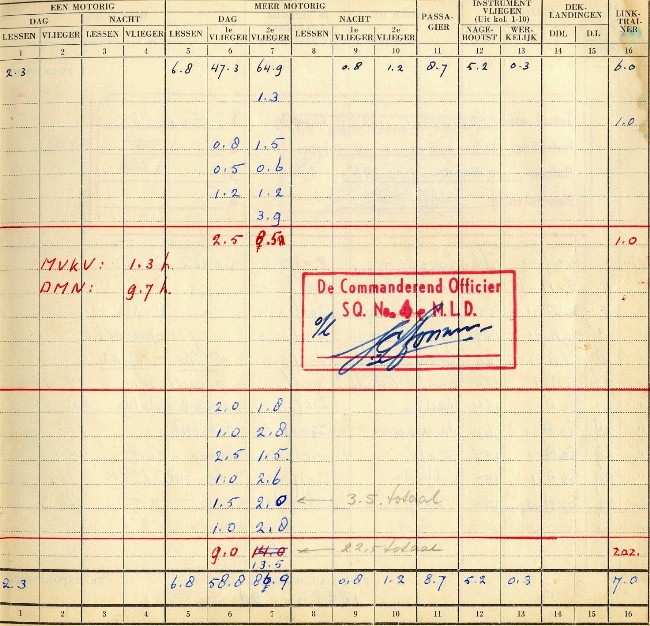 EEN MOTORIG MEER MOTORIG INSTRUMENT VLIEGEN (Uit kol. 1-10) DEK-LANDINGEN LINK-TRAI-NER
DAG NACHT DAG NACHT PASSA-GIER
LESSEN VLIEGER LESSEN VLIEGER LESSEN 1e VLIEGER 2e VLIEGER LESSEN 1e VLIEGER 2e VLIEGER NAGE-BOOTST WER-KELIJK DDL D.L
1 2 3 4 5 6 7 8 9 10 11 12 13 14 15 16
2.3 6.8 47.3 64.9 0.8 1.2 8.7 5.2 0.3 6.0
1.3
1.0
0.8 1.5
0.5 0.6
1.2 1.2
3.9
2.5 8.5 1.0
MVKV: 1.3 h.
DMN: 9.7 h.
De Commanderend Officier
SQ. No. 4 M.L.D.
o/l
2.0 1.8
1.0 2.8
2.5 1.5
1.0 2.6
1.5 2.0 ← 3.5 totaal
1.0 2.8
9.0 14.0 ← 22.5 totaal
13.5
2.3 6.8 58.8 86.9 0.8 1.2 8.7 5.2 0.3 7.0
1 2 3 4 5 6 7 8 9 10 11 12 13 14 15 16